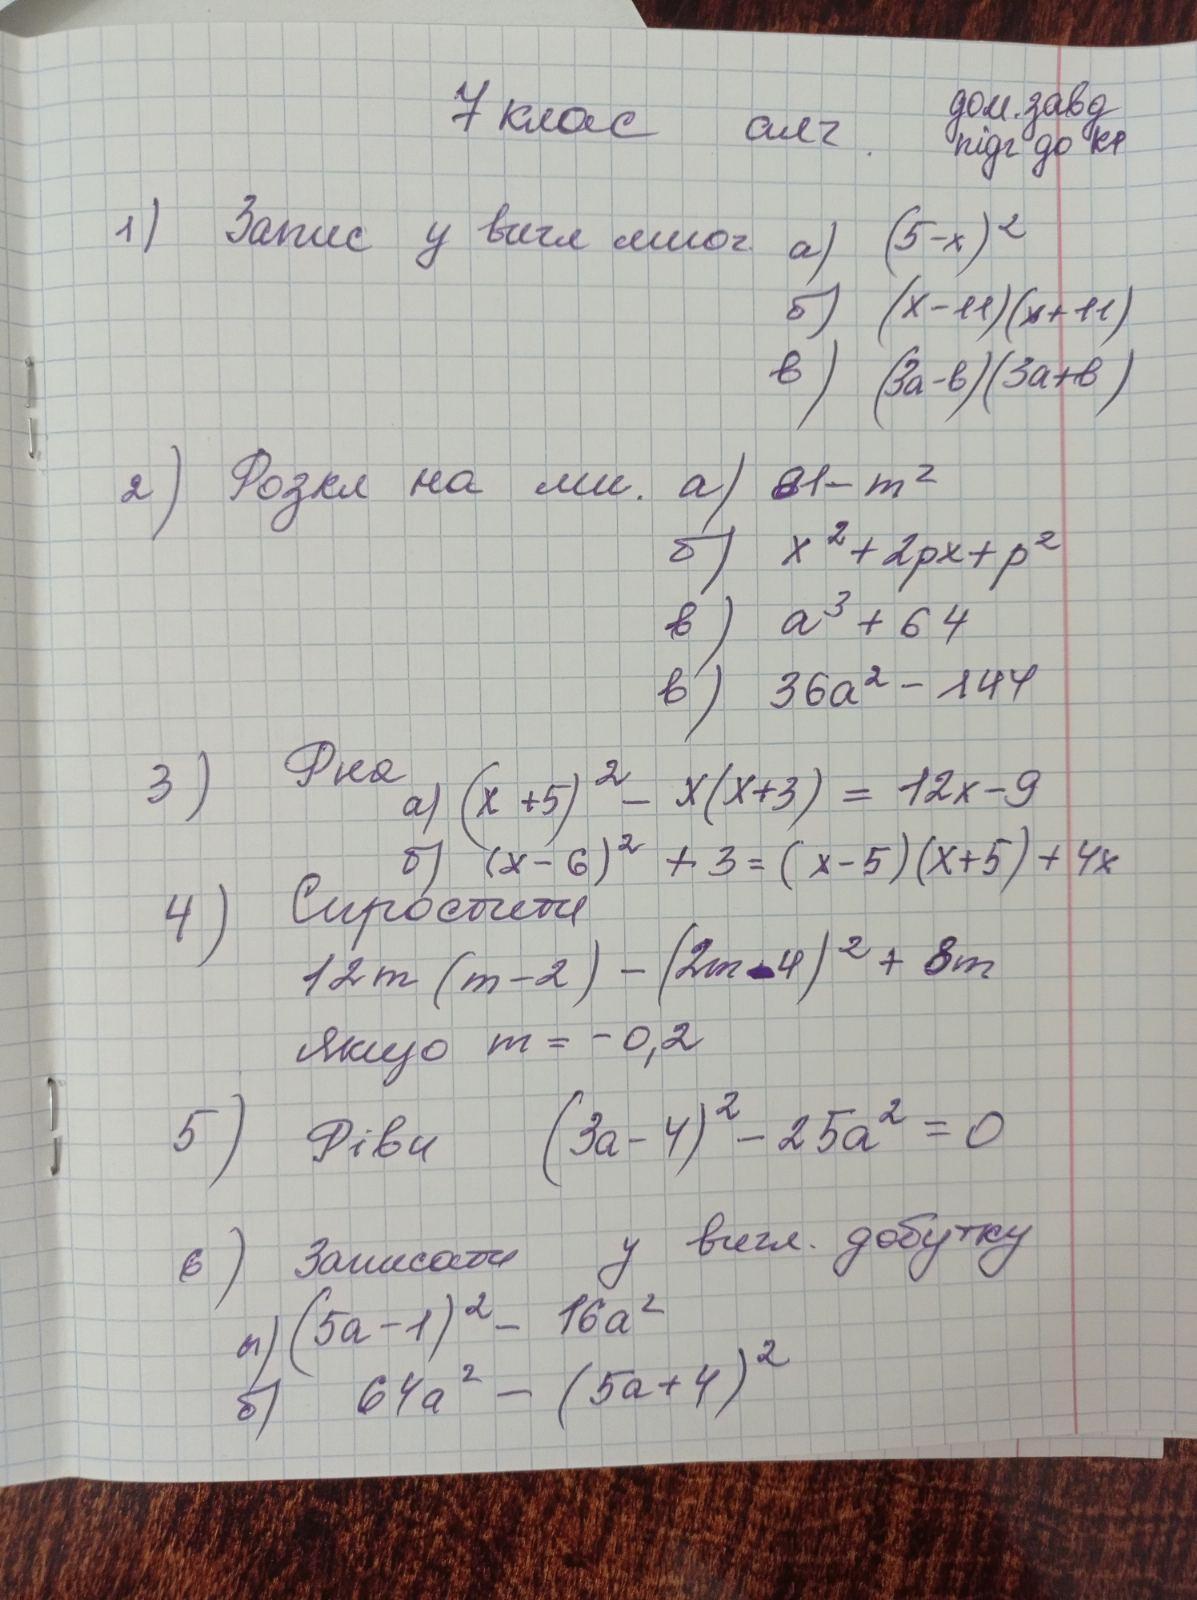 7 клас алг. дом. завд
підг до КР
1) Запис у вигл мног. а) (5-x)²
б) (x-11)(x+11)
в) (3a-b)(3a+b)
2) Розкл на мн. а) 81-m²
б) x²+2px+p²
в) a³+64
в) 36a²-144
3) Рня
а) (x+5)²-x(x+3)=12x-9
б) (x-6)²+3=(x-5)(x+5)+4x
4) Спростити
12m(m-2)-(2m-4)²+8m
якщо m=-0,2
5) Рівн (3a-4)²-25a²=0
6) Записати у вигл. добутку
а) (5a-1)²-16a²
б) 64a²-(5a+4)²